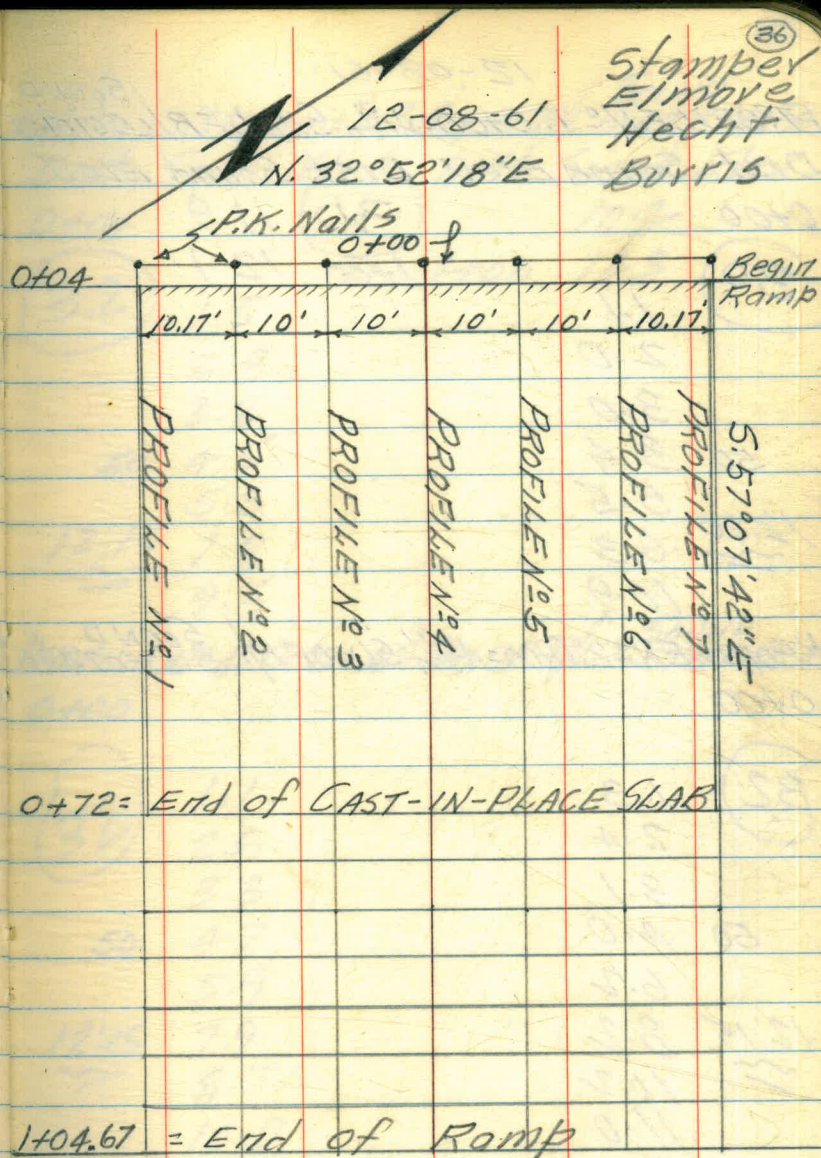 36
Stamper
Elmore
Hecht
Burris
12-08-61
N
N. 32°52'18"E
P.K. Nails
0+00
0+04
Begin
Ramp
10.17' 10' 10' 10' 10' 10.17'
PROFILE Nº 1
PROFILE Nº 2
PROFILE Nº 3
PROFILE Nº 4
PROFILE Nº 5
PROFILE Nº 6
PROFILE Nº 7
S.57°07'42"E
0+72= End of CAST-IN-PLACE SLAB
1+04.67 = End of Ramp